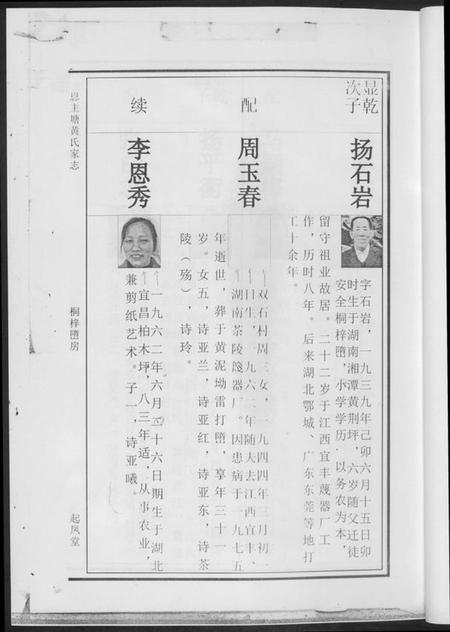 显乾
次子
扬石岩
字石岩，一九三九年己卯六月十五日卯
时生于湖南湘潭黄荆坪，六岁随父迁徒
安全桐梓堕，小学学历．以务农为本，
留守祖业故居。二十二岁于江西宜丰蔑器厂工
作，历时八年。后来湖北鄂城、广东东莞等地打
工十余年。
配
周玉春
双石村周三女，一九四四年三月初一
日生，一九六二年随夫去江西宜丰、
湖南茶陵篾器厂。因患病于一九七五
年逝世，葬于黄泥坳雷打堕，享年三十一
岁。女五，诗亚兰，诗亚红，诗亚东，诗茶
陵（殇），诗玲。
续
李恩秀
一九六二年六月二十六日期生于湖北
宜昌柏木坪，八三年适，从事农业，
兼剪纸艺术。子一，诗亚曦。
恩主塘黄氏家志
桐梓堕房
起凤堂